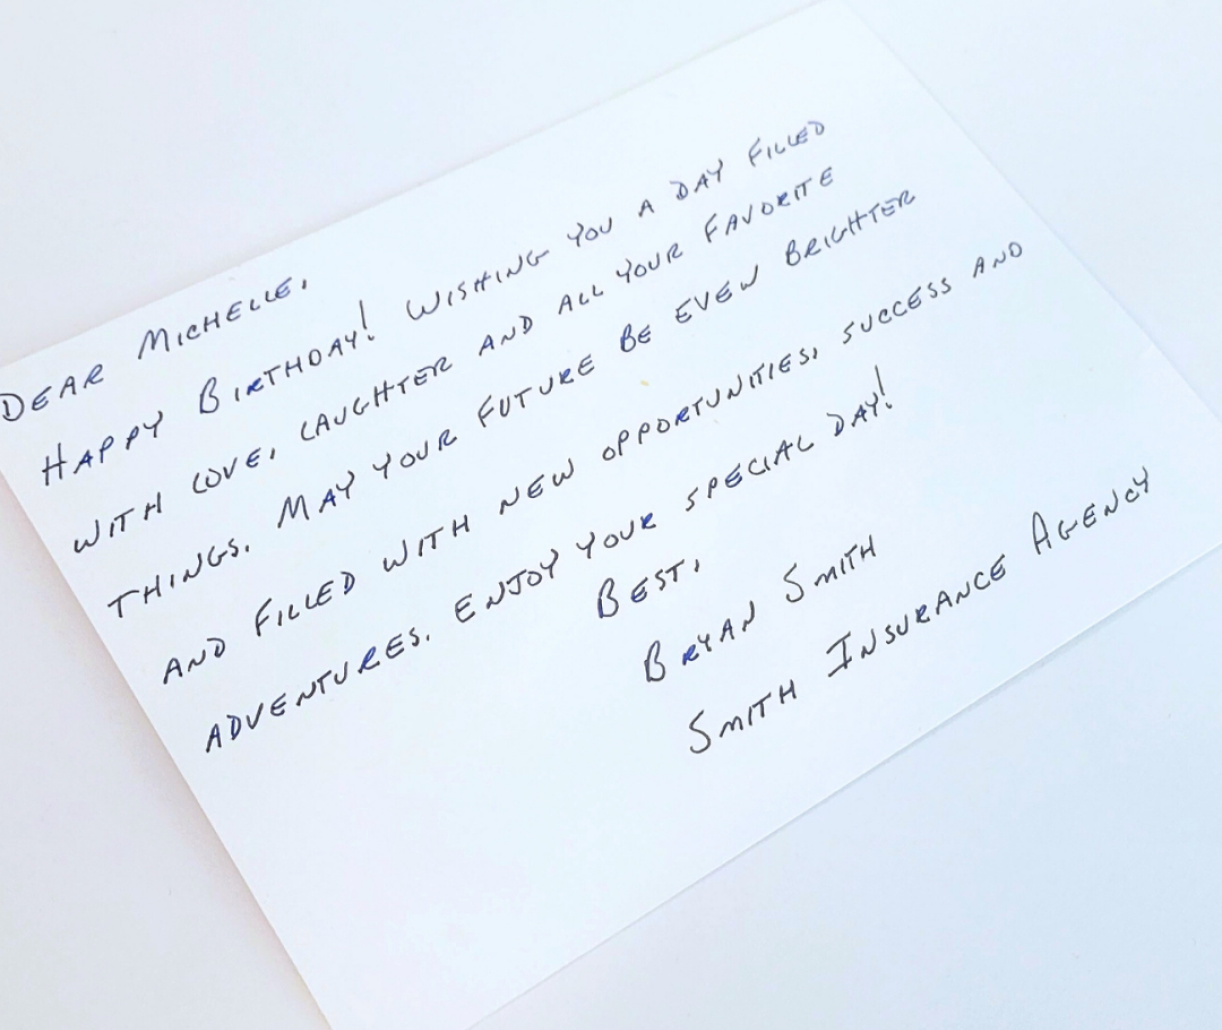 DEAR MICHELLE,
HAPPY BIRTHDAY! WISHING YOU A DAY FILLED
WITH LOVE, LAUGHTER AND ALL YOUR FAVORITE
THINGS. MAY YOUR FUTURE BE EVEN BRIGHTER
AND FILLED WITH NEW OPPORTUNITIES, SUCCESS AND
ADVENTURES. ENJOY YOUR SPECIAL DAY!
BEST,
BRYAN SMITH
SMITH INSURANCE AGENCY